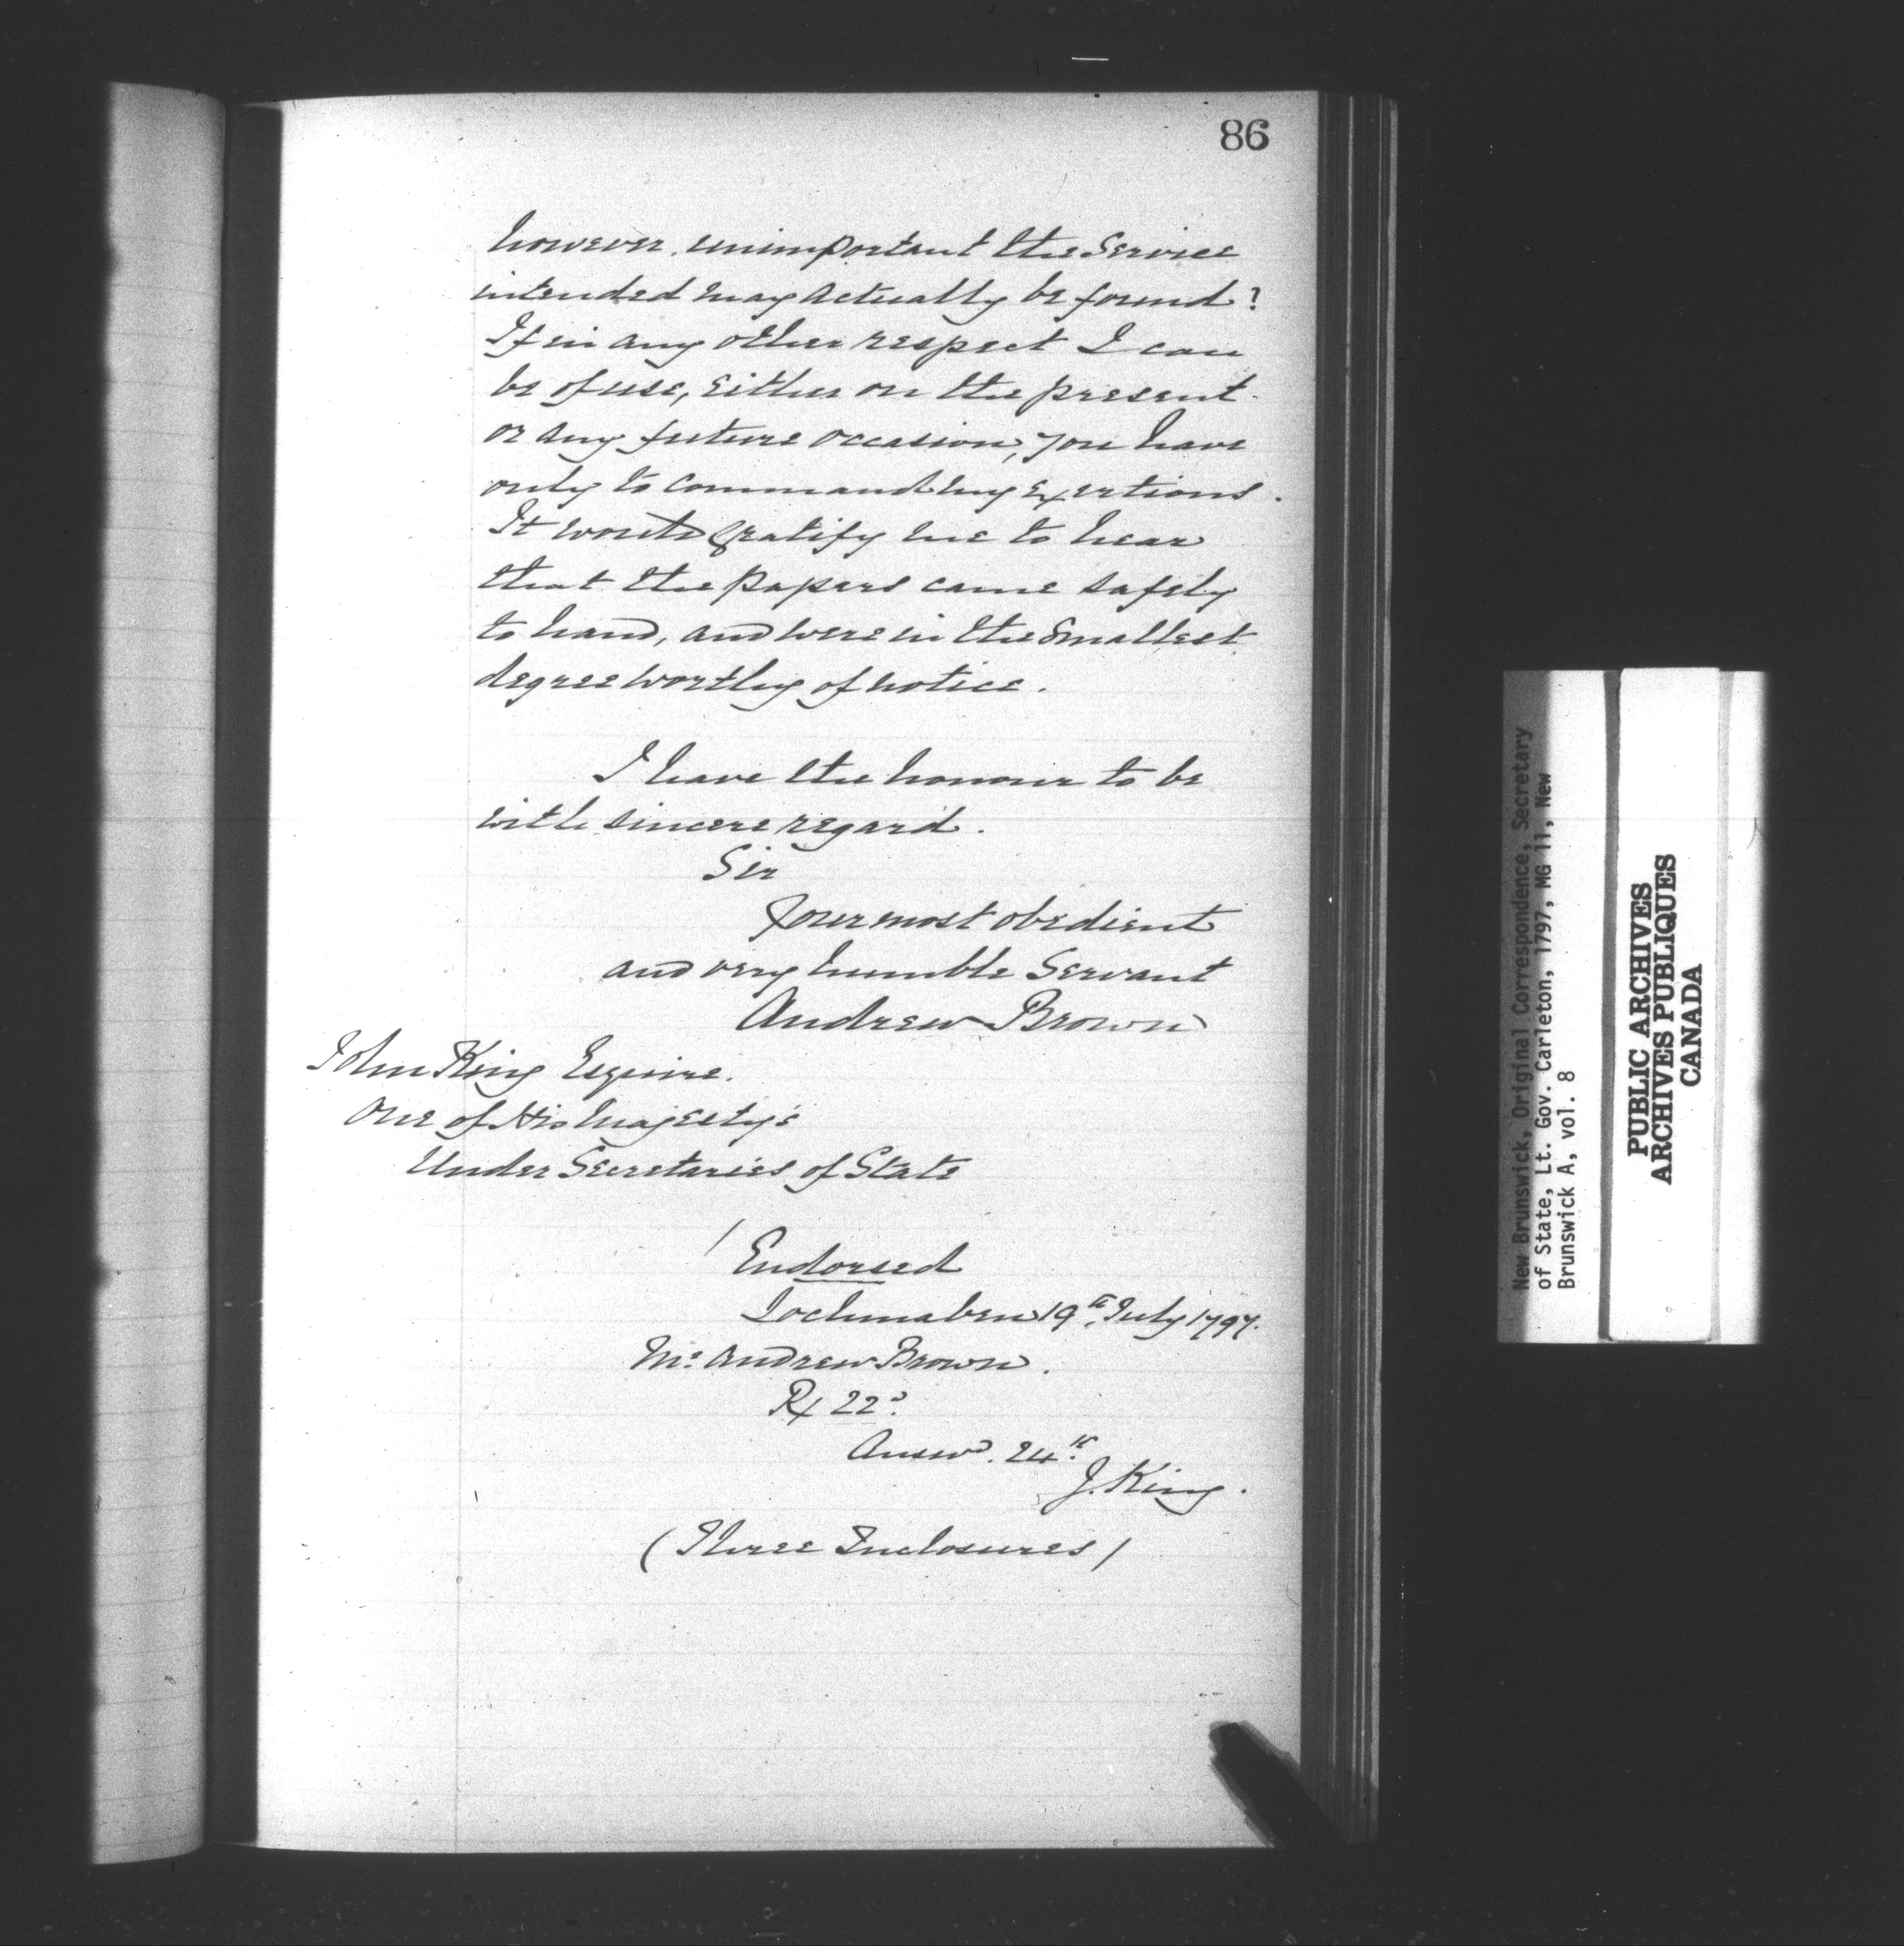 86
however unimportant the Service
intended may actually be found?
If in any other respect I can
be of use, either on the present
or any future occasion, you have
only to command my exertions.
It would gratify me to hear
that the papers came safely
to hand, and were in the smallest
degree worthy of notice.
I have the honour to be
with sincere regard.
Sir
Your most obedient
and very humble Servant
Andrew Brown
John King Esquire.
One of His Majesty's
Under Secretaries of State
/ Endorsed
Lochmaben 19th July 1797.
Mr. Andrew Brown.
Rx 22d.
Answd. 24th.
J. King.
(Three Inclosures)
New Brunswick, Original Correspondence, Secretary
of State, Lt. Gov. Carleton, 1797, MG 11, New
Brunswick A, vol. 8
PUBLIC ARCHIVES
ARCHIVES PUBLIQUES
CANADA